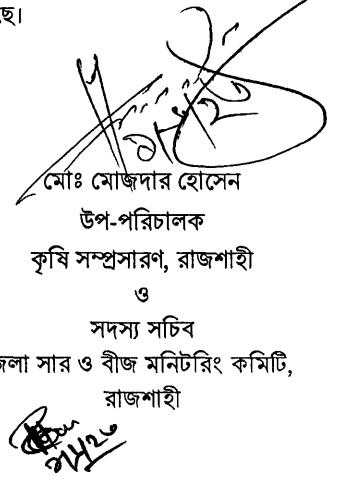 ছে।
মোঃ মোজদার হোসেন
উপ-পরিচালক
কৃষি সম্প্রসারণ, রাজশাহী
ও
সদস্য সচিব
জেলা সার ও বীজ মনিটরিং কমিটি,
রাজশাহী